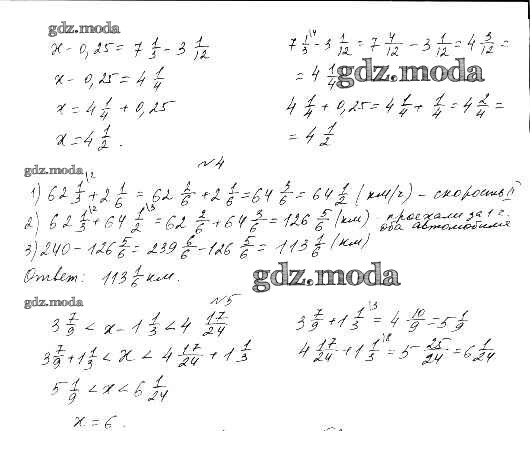 gdz.moda
x - 0,25 = 7 1/3 - 3 1/12
x - 0,25 = 4 1/4
x = 4 1/4 + 0,25
x = 4 1/2.
7 1/3 \4 - 3 1/12 = 7 4/12 - 3 1/12 = 4 3/12 =
= 4 1/4
gdz.moda
4 1/4 + 0,25 = 4 1/4 + 1/4 = 4 2/4 =
= 4 1/2
№4
gdz.moda
1) 62 1/3 \2 + 2 1/6 = 62 2/6 + 2 1/6 = 64 3/6 = 64 1/2 (км/ч) - скорость II
2) 62 1/3 \2 + 64 1/2 \3 = 62 2/6 + 64 3/6 = 126 5/6 (км) - проехали за 1 г.
оба автомобиля
3) 240 - 126 5/6 = 239 6/6 - 126 5/6 = 113 1/6 (км)
Ответ: 113 1/6 км.
gdz.moda
gdz.moda
№5
3 7/9 < x - 1 1/3 < 4 17/24
3 7/9 + 1 1/3 < x < 4 17/24 + 1 1/3
5 1/9 < x < 6 1/24
x = 6.
3 7/9 + 1 1/3 \3 = 4 10/9 = 5 1/9
4 17/24 + 1 1/3 \8 = 5 25/24 = 6 1/24